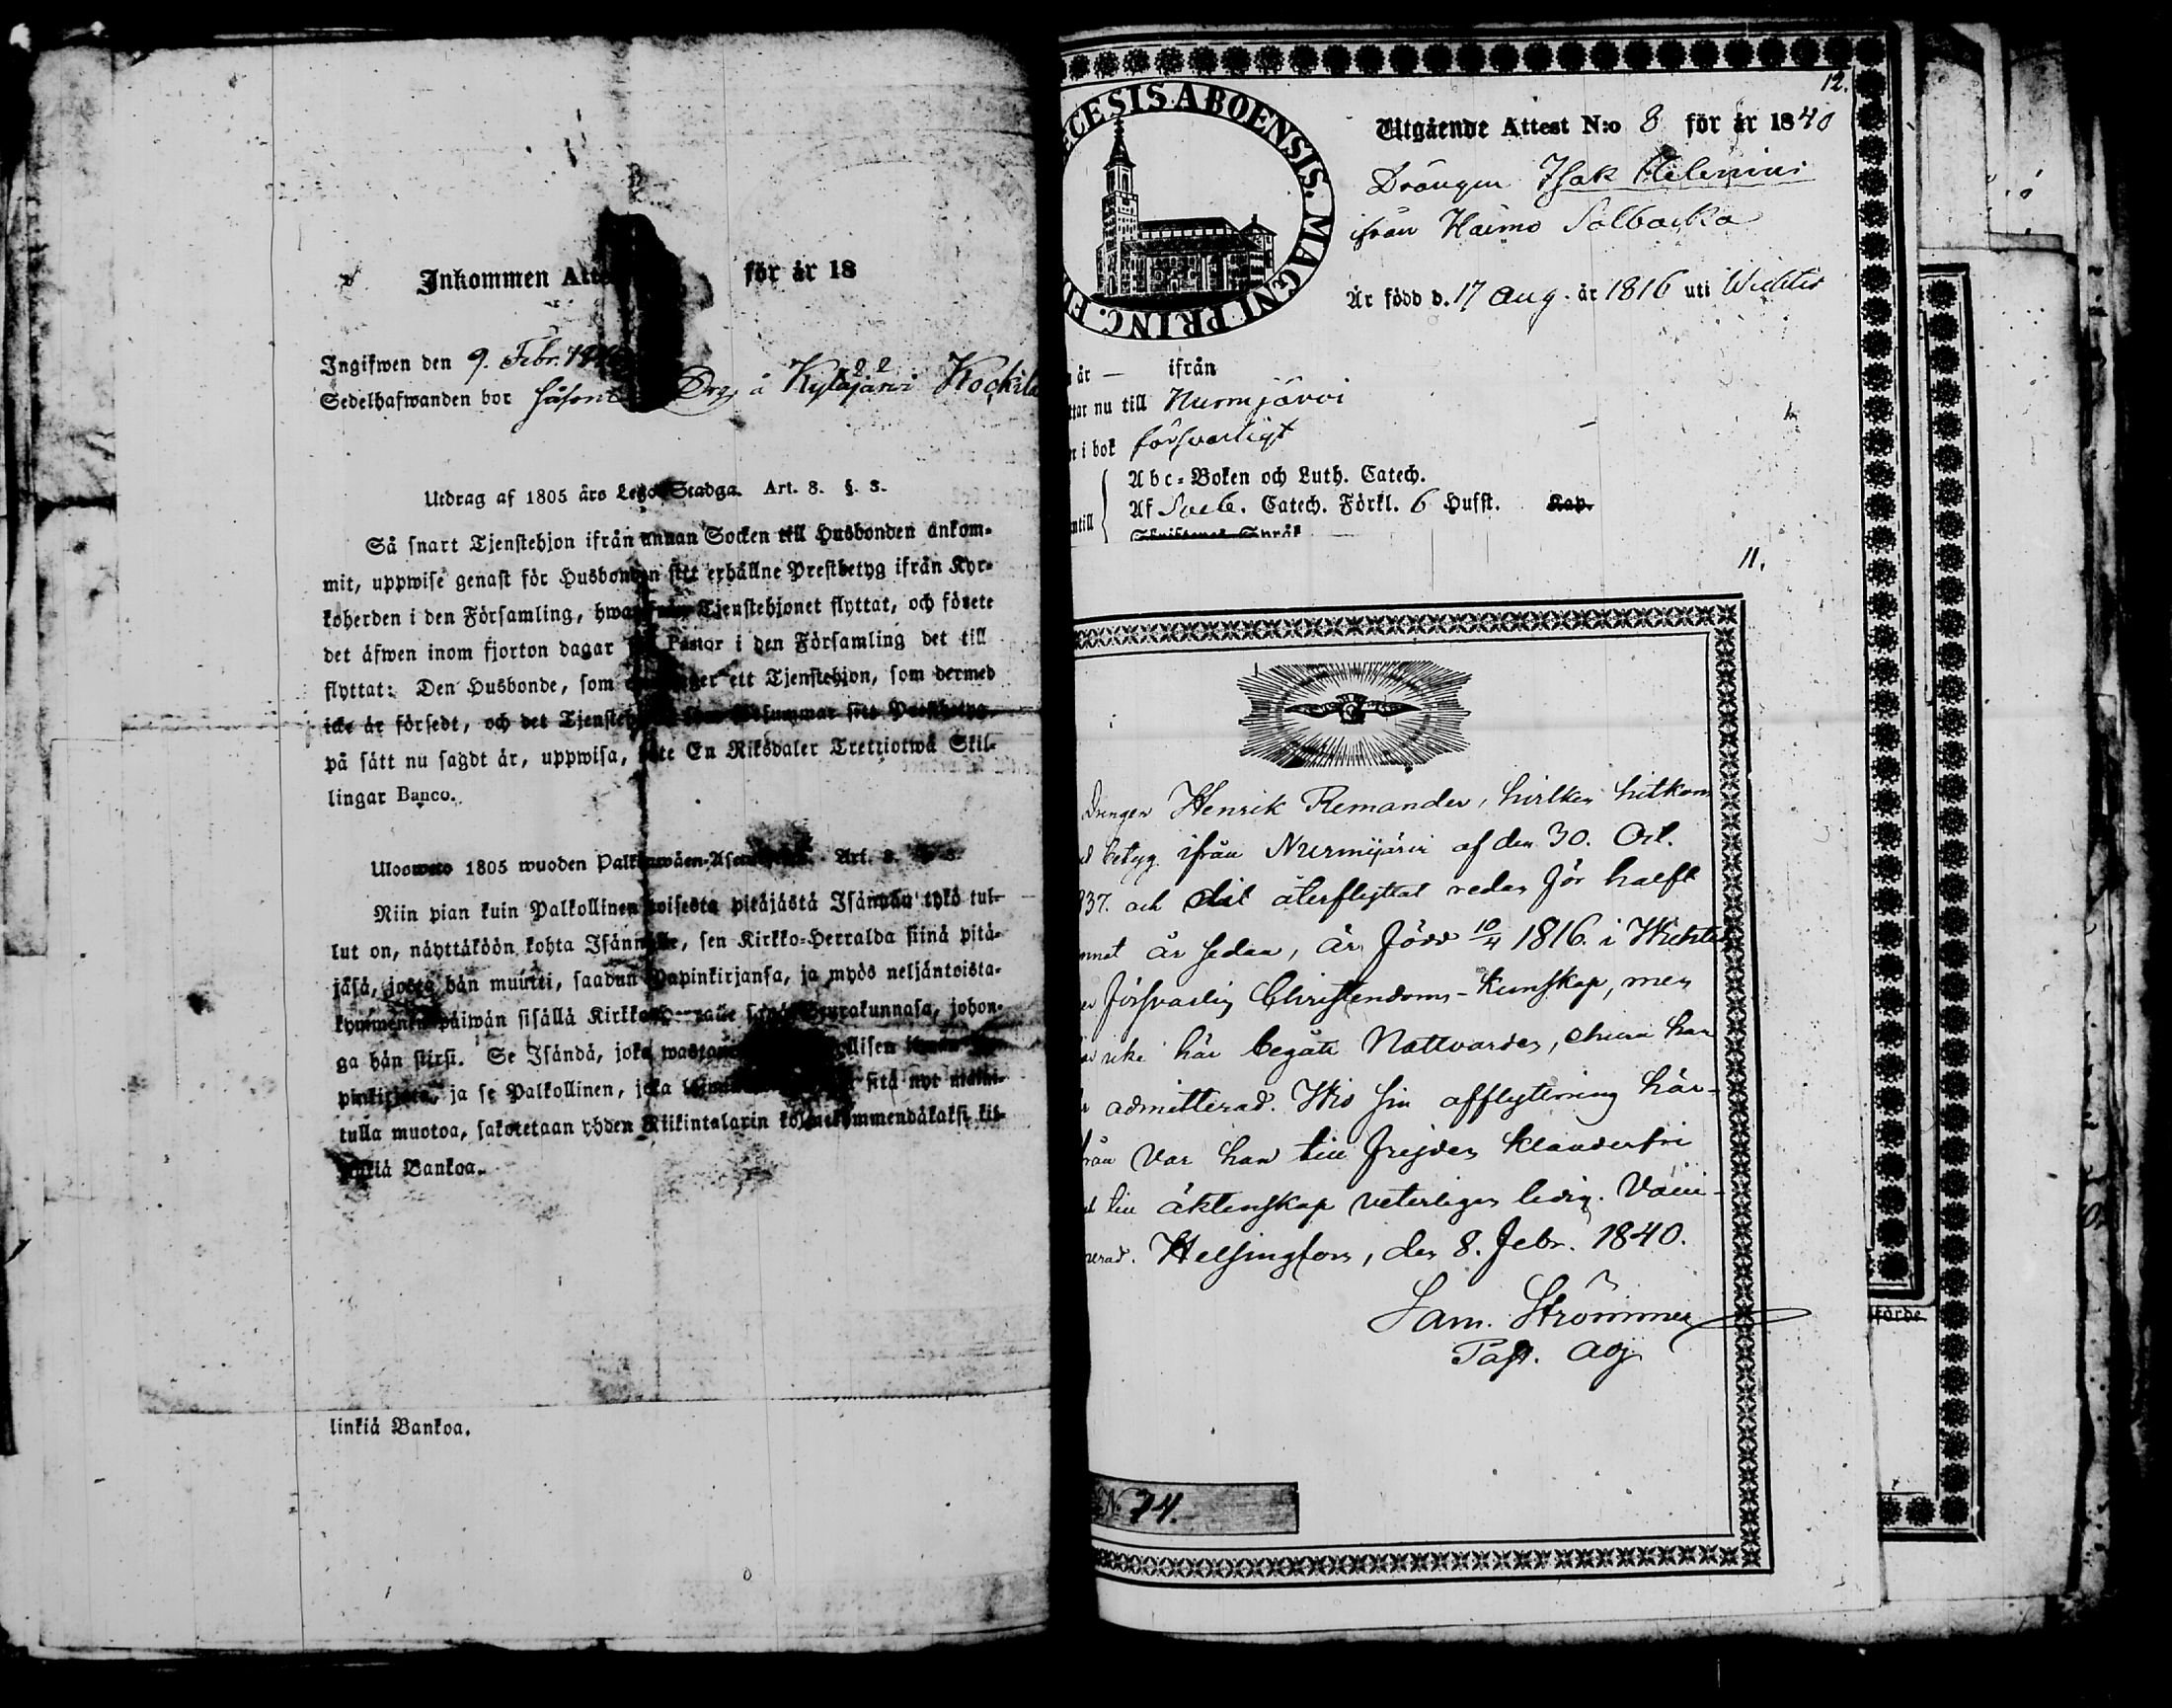 Inkommen för år 18
Ingifwen den 9. Febr.
Sedelhafwanden bor å Kylajärvi
Utdrag af 1805 års Lego-Stadga. Art. 8. §. 3.
Så snart Tjenstehjon ifrån annan Socken till Husbonden ankom-
mit, uppwise genast för Husbonden sitt erhållne Prestbetyg ifrån Kyr-
koherden i den Församling, Tjenstehjonet flyttat, och förete
det äfwen inom fjorton dagar Pastor i den Församling det till
flyttat: Den Husbonde, som ett Tjenstehjon, som dermed
icke är försedt, och det
på sätt nu sagdt är, uppwisa, böte En Riksdaler Trettiotwå Skil-
lingar Banco.
Ulosweto 1805 wuoden Art. 8.
Niin pian kuin Palkollinen toisesta pitäjästä Isännän tykö tul-
lut on, näyttäköön kohta Isännälle, sen Kirkko-Herralda siinä pitä-
jäsä, josta hän muutti, saadun Papinkirjansa, ja myös neljäntoista-
päiwän sisällä Seurakunnasa, johon-
ga hän siirsi. Se Isändä, joka
ja se Palkollinen, joka sitä nyt
tulla muotoa, sakotetaan yhden Riikintalarin kolmekymmendäkaksi kil-
Bankoa.
linkiä Bankoa.
12.
ECESIS ABOENSIS. MAGNI PRINC.
Utgående Attest N:o 8 för år 1840
Drängen Isak Helenius
ifrån Haimo Salbacka
Är född d. 17 Aug. år 1816 uti Wichtis
år — ifrån
nu till Nurmijärvi
i bok försvarligt
Abc-Boken och Luth. Catech.
Af Sveb. Catech. Förkl. 6 Hufst. Kap.
11.
Drengen Henrik Remander, hvilken hitkom
betyg ifrån Nurmijärvi af den 30. Oct.
837. och dit återflyttat redan för halft
annat år sedan, är född 10/4 1816. i Wichtis
försvarlig Christendoms-Kunskap, men
icke här begått Nattvarden, ehuru han
admitterad. Wid sin afflyttning här-
ifrån var han till frejden klanderfri
till äktenskap veterligen ledig. Vacci-
nerad. Helsingfors, den 8. Febr. 1840.
Sam. Strömmer
Past. Adj.
No 74.